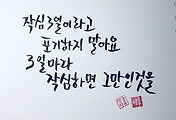 작심3일이라고
포기하지 말아요
3일마다
작심하면 그만인것을